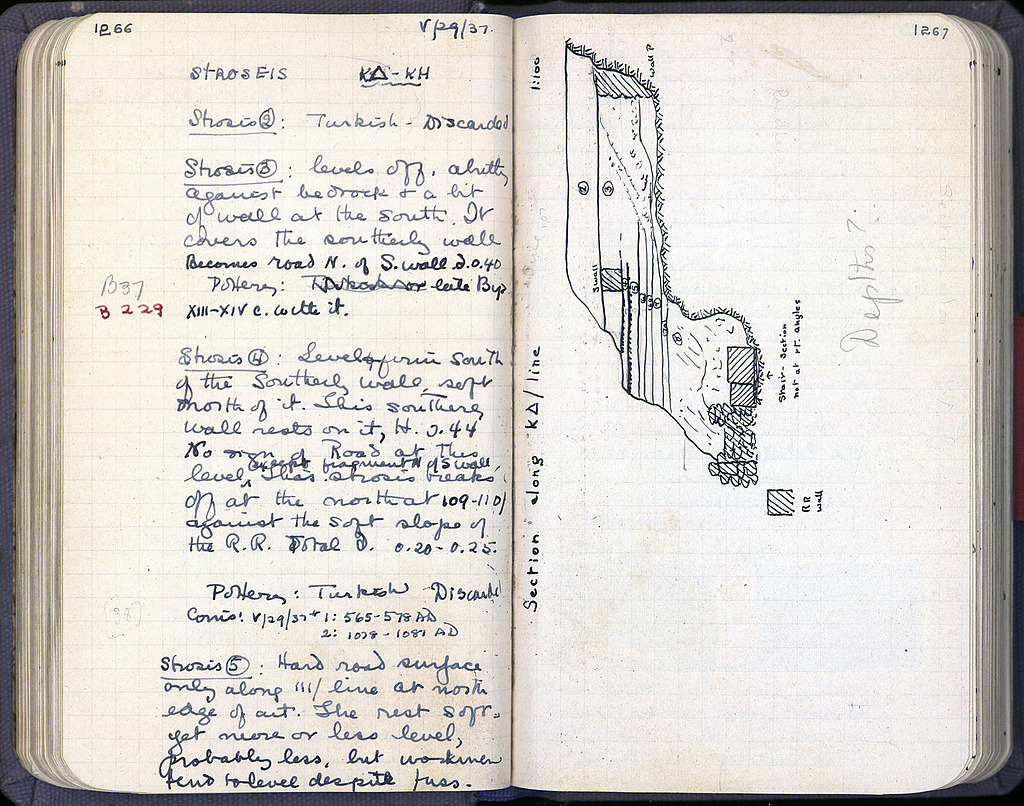 1266
V/29/37.
STROSEIS KΔ-KH
Strosis ②: Turkish - Discarded
Strosis ③: levels off, abutting
against bedrock & a bit
of wall at the south. It
covers the southerly wall
Becomes road N. of S. wall d. 0.40
B37
Pottery: late Byz
B 229
XIII-XIV c. with it.
Strosis ④: Level from South
of the Southerly wall, soft
north of it. This southerly
wall rests on it, H. 0.44
No sign of Road at this
except fragment N of S wall,
level. This strosis breaks
off at the north at 109-110/
against the soft slope of
the R.R. Total d. 0.20-0.25.
Pottery: Turkish Discarded
(38)
Coins: V/29/37 #1: 565-578 AD
2: 1078-1081 AD
Strosis ⑤: Hard road surface
only along 111/ line at north
edge of cut. The rest soft,
yet more or less level,
probably less, but workmen
tend to level despite fuss.
1267
Section along KΔ/line 1:100
wall P
② ③
S wall
⑤
⑧
Stair-Section
not at rt. angles
RR
wall
Depths?